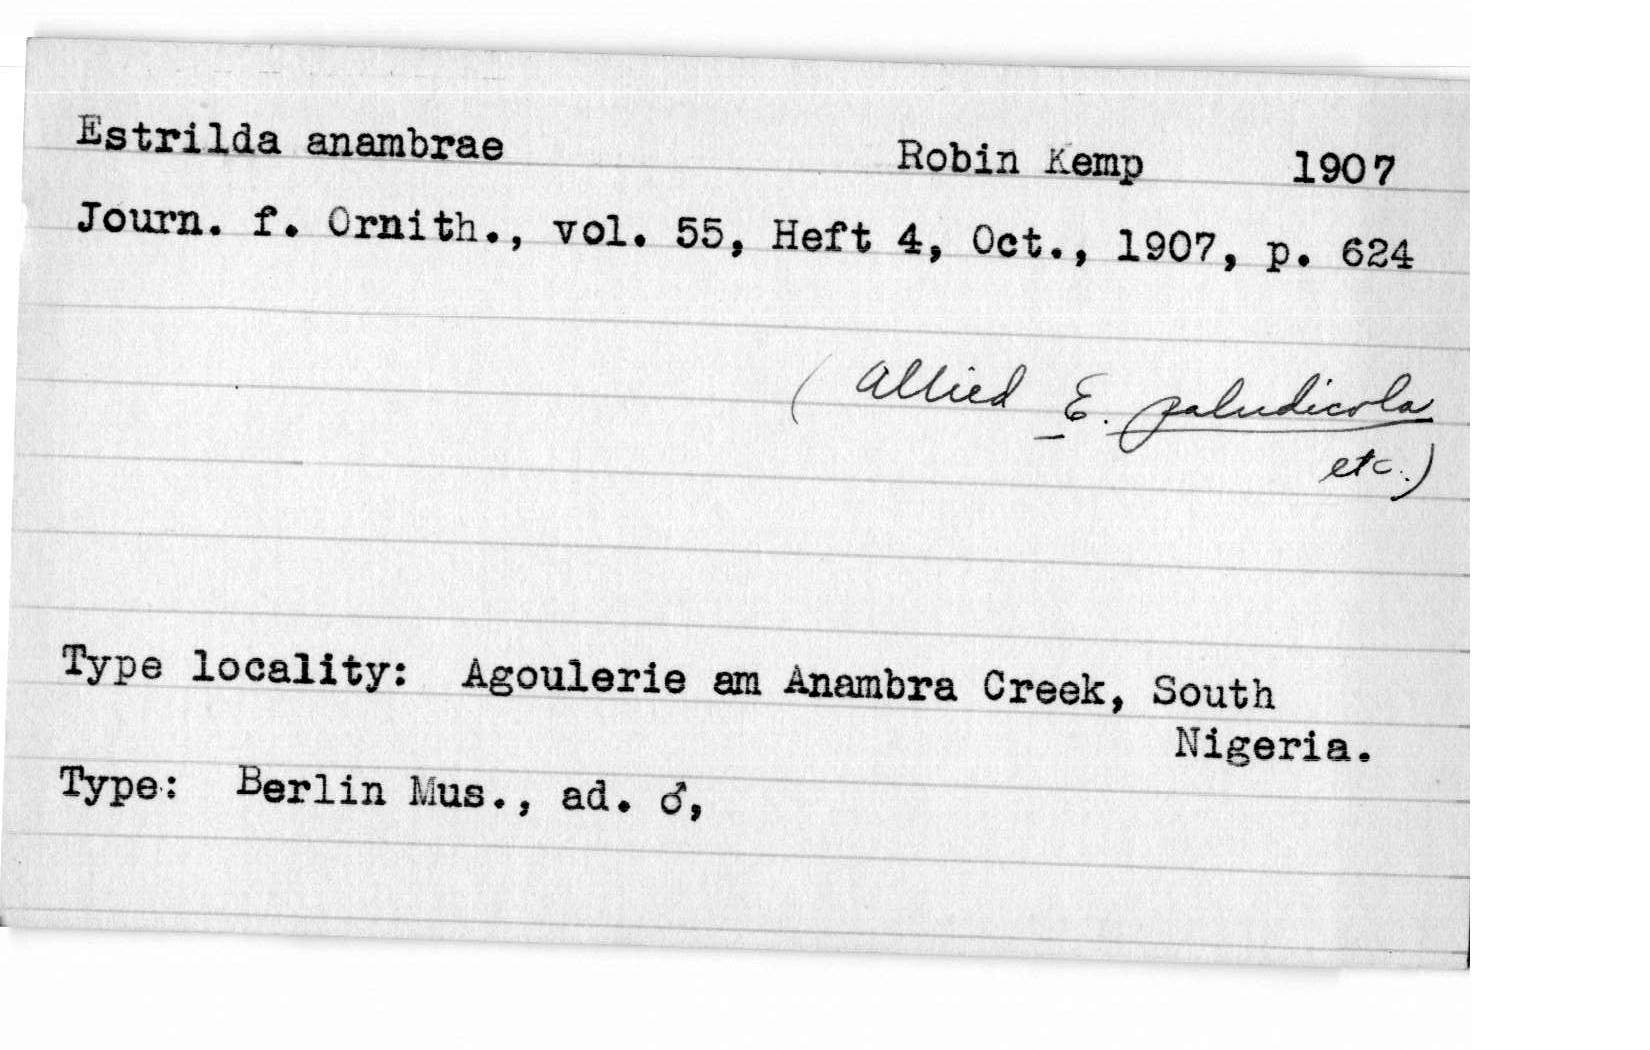 Estrilda anambrae Robin Kemp 1907
Journ. f. Ornith., vol. 55, Heft 4, Oct., 1907, p. 624
(Allied E. paludicola
etc.)
Type locality: Agoulerie am Anambra Creek, South
Nigeria.
Type: Berlin Mus., ad. ♂,